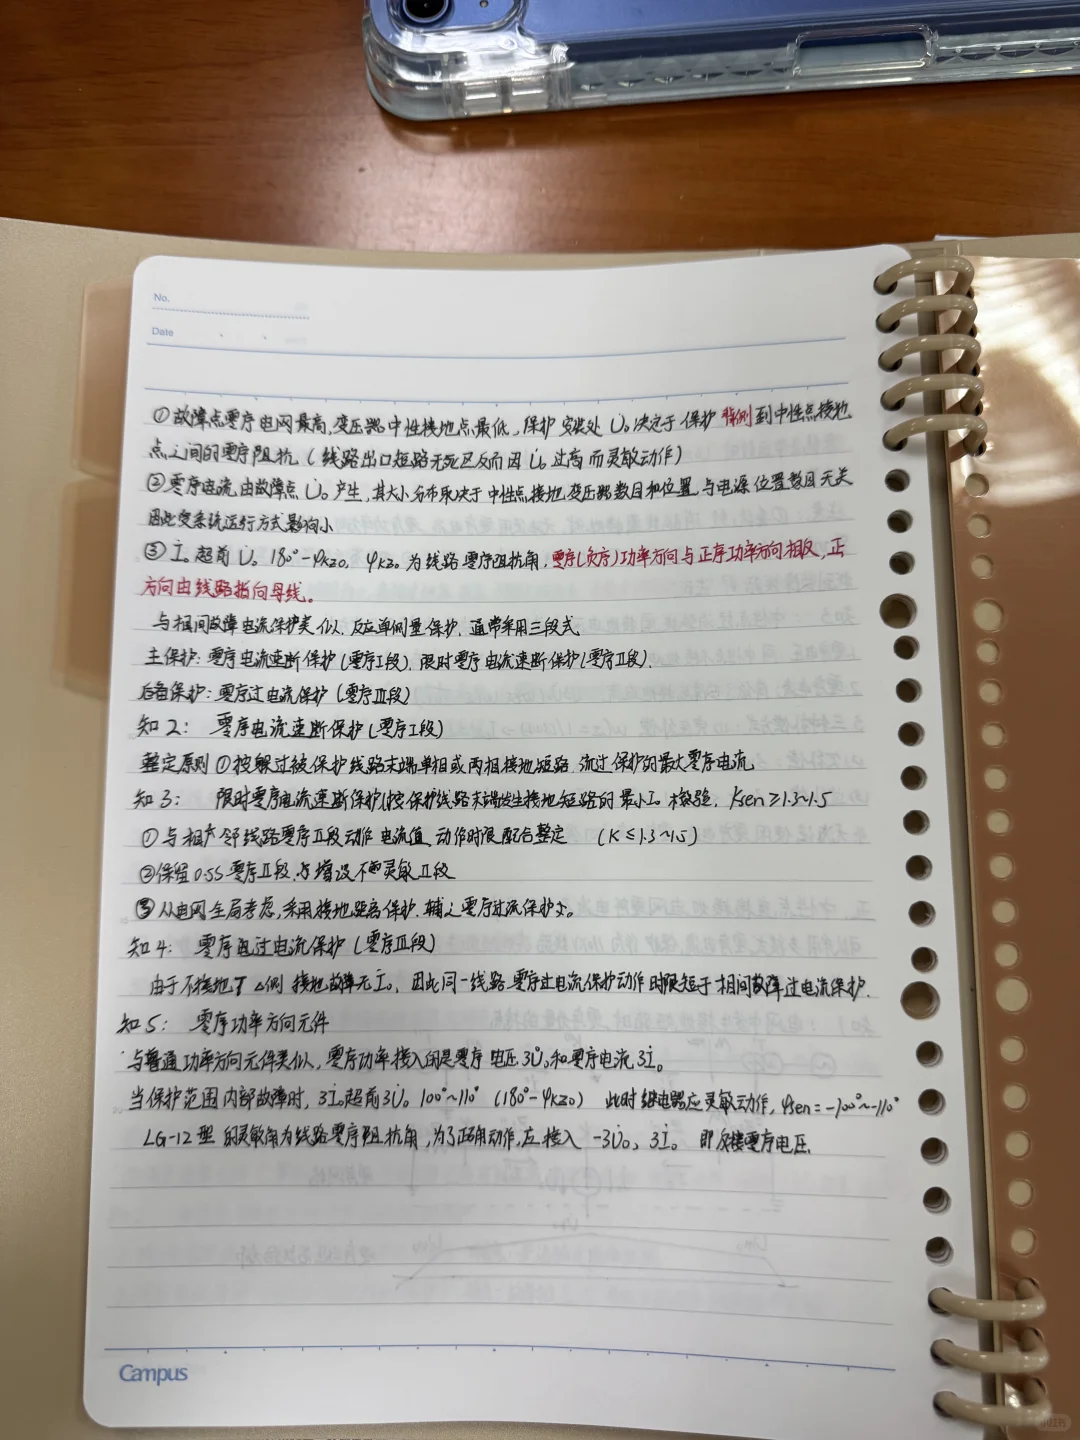 No.
Date
①故障点零序电网最高,变压器中性接地点最低,保护安装处U̇₀决定于保护背侧到中性点接地
点之间的零序阻抗。(线路出口短路无死区反而因U̇₀过高而灵敏动作)
②零序电流由故障点U̇₀产生,其大小分布取决于中性点接地变压器数目和位置,与电源位置数目无关
因此受系统运行方式影响小
③İ₀超前U̇₀ 180°-φk20, φk20为线路零序阻抗角,零序(负序)功率方向与正序功率方向相反,正
方向由线路指向母线。
与相间故障电流保护类似,反应单侧量保护,通常采用三段式
主保护:零序电流速断保护(零序I段),限时零序电流速断保护(零序II段).
后备保护:零序过电流保护(零序III段)
知2: 零序电流速断保护(零序I段)
整定原则①按躲过被保护线路末端单相或两相接地短路,流过保护的最大零序电流
知3: 限时零序电流速断保护(按保护线路末端发生接地短路的最小I₀校验, Ksen≥1.3~1.5
①与相邻线路零序II段动作电流值,动作时限配合整定 (K≤1.3~1.5)
②保留0.5S零序II段,与增设不灵敏II段
③从电网全局考虑,采用接地距离保护,辅之零序过流保护。
知4: 零序过电流保护(零序III段)
由于不接地Y △侧接地故障无I₀,因此同一线路零序过电流保护动作时限短于相间故障过电流保护.
知5: 零序功率方向元件
与普通功率方向元件类似,零序功率接入的是零序电压3U̇₀和零序电流3İ₀
当保护范围内部故障时,3İ₀超前3U̇₀ 100°~110° (180°-φk20) 此时继电器应灵敏动作, φsen=-100°~-110°
LG-12型的灵敏角为线路零序阻抗角,为了正确动作,应接入 -3U̇₀, 3İ₀ 即反接零序电压.
Campus